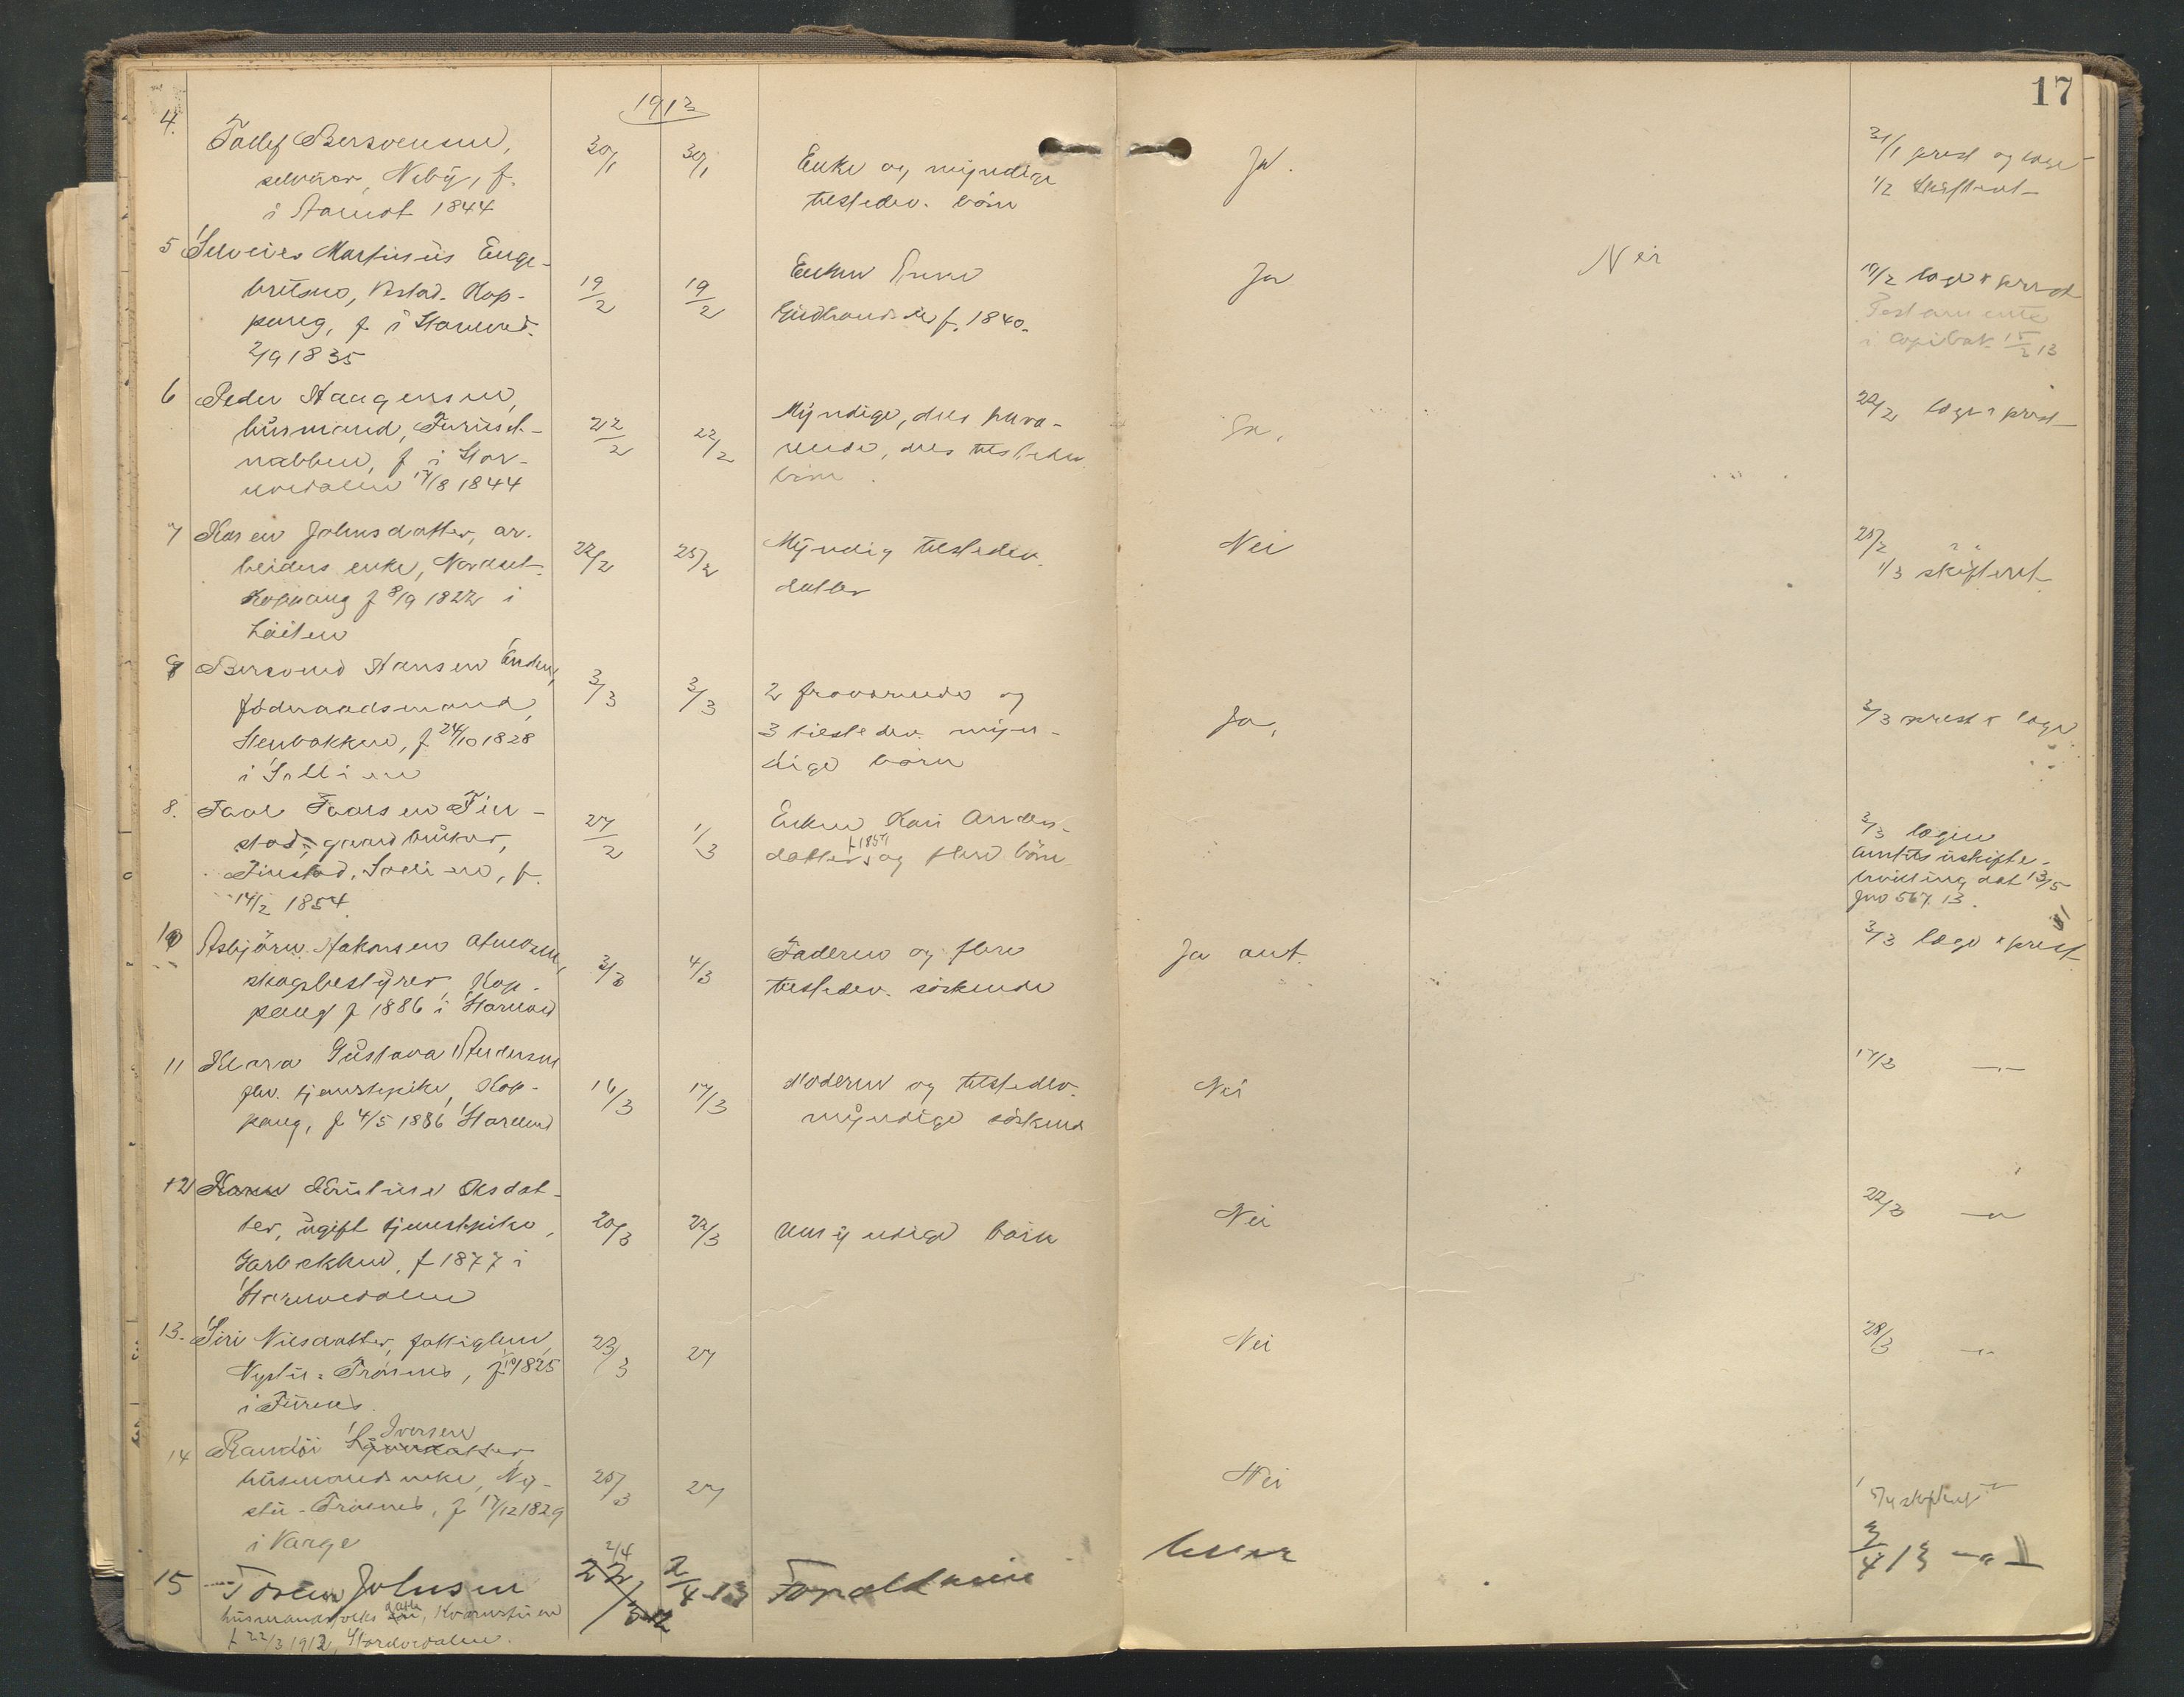 17
1913
4.
Tollef Bersvensen,
selveier, Neby, f.
i Stamot 1844
30/1
30/1
Enke og myndige
tilstedev. børn
Ja.
31/1 prest og læge
1/2 skifteret
5 Selveier Martinius Enge-
bretsen, Kop-
pang, f i Storelved.
2/9 1835
19/2
19/2
Enken
f. 1840.
Ja
Nei
19/2 læge & prest
Testamente
i Copibok 15/2 13
6 Peder Haagensen,
husmand, Furuset-
nabben, f i Stor-
elvedalen 17/8 1844
22/2
22/2
Myndige, dels frava-
rende, dels tilstedev.
børn.
Ja,
22/2 læge & prest
7 Karen Johnsdatter, ar-
beiders enke, Nordset
Koppang f 8/9 1822 i
Løiten
22/2
25/2
Myndig tilstedev.
datter
Nei
25/2 " "
1/3 skifteret
9 Bersvend Hansen Enden,
føderaadsmand,
Stenbakken, f 24/10 1828
i Sollien
3/3
3/3
2 fraværende og
3 tilstedev. myn-
dige børn
Ja,
3/3 prest & læge
8. Paal Paalsen Fin-
stad, gaardbruker,
Finstad, Sollien, f.
14/2 1854.
27/2
1/3
Enken Kari Anders-
datter, f 1857 og flere børn
3/3 lægen
Amtets uskifte-
bevilling dat 13/5
Jno 567. 13.
10 Asbjørn Hakonsen Atneosen,
skogbestyrer, Kop-
pang f 1886 i Storelved
3/3
4/3
Faderen og flere
tilstedev. søskende
Ja ant.
3/3 læge & prest
11 Klara Gustava Andersen
fhv. tjenestepike, Kop-
pang, f 4/5 1886 Storelved
16/3
17/3
Moderen og tilstedev.
myndige søskend
Nei
17/3 —"—
12 Karen Kristine Olsdat-
ter, ugift tjenestepike,
Garbakken, f 1877 i
Storelvedalen
20/3
22/3
Umyndige børn
Nei
22/3 —"—
13. Siri Nilsdatter, fattiglem,
Nystu-Trønnes, f 1825
i Furnes.
23/3
27
Nei
28/3 —"—
14 Randi Iversen
husmandsenke, Ny-
stu-Trønnes, f 17/12 1829
i Vang
25/3
27
Nei
skifteret
15 Toren Johnsen
husmandsfolks datter, Kvernstuen
f 22/3 1912, Storelvedalen.
2/4
2/4 13
Forældrene
3/4 13 —"—